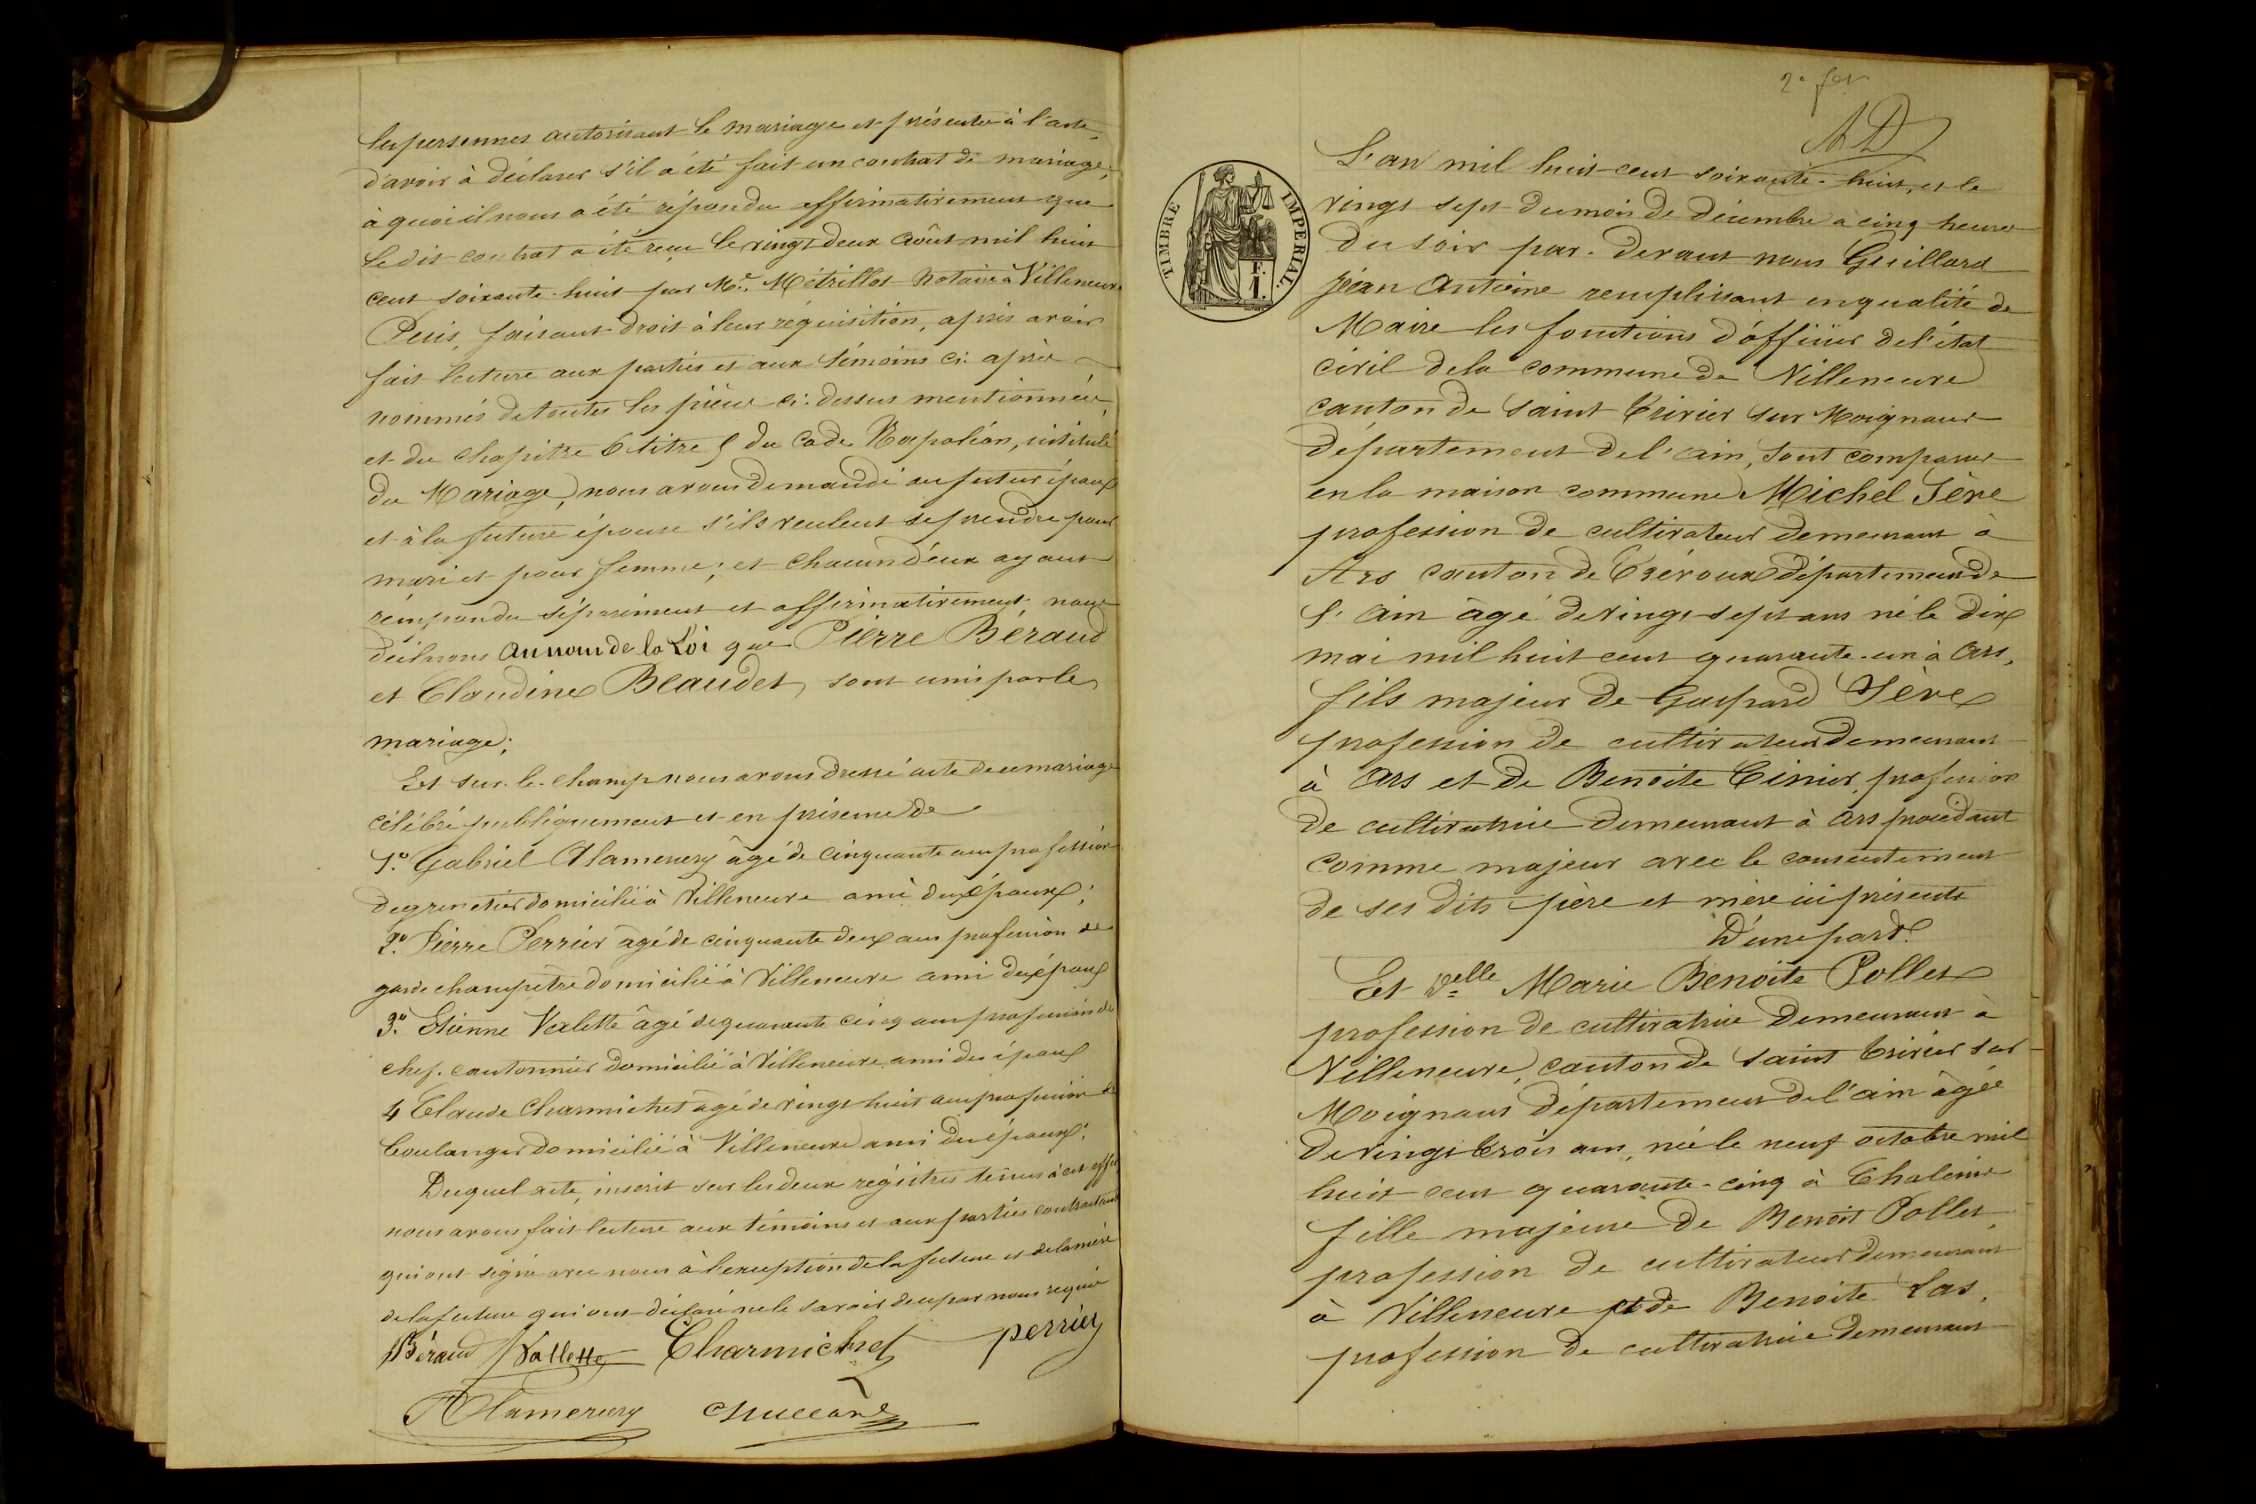 les personnes autorisant le mariage et présente à l'acte,
d'avoir à déclarer s'il a été fait un contrat de mariage;
à quoi il nous a été répondu affirmativement que
le dit contrat a été reçu le vingt deux août mil huit
cent soixante-huit par Me. Métrillot Notaire à Villeneuve
Puis, faisant droit à leur réquisition, après avoir
fait lecture aux parties et aux témoins ci-après
nommés de toutes les pièces ci-dessus mentionnées,
et du chapitre 6 titre 5 du Code Napoléon, intitulé
du Mariage, nous avons demandé au futur époux
et à la future épouse s'ils veulent se prendre pour
mari et pour femme; et chacun d'eux ayant
répondu séparément et affirmativement, nous
déclarons au nom de la Loi que Pierre Béraud
et Claudine Beaudet, sont unis par le
mariage;
Et sur-le-champ nous avons dressé acte de ce mariage
célébré publiquement et en présence de
1º. Gabriel Alamercery âgé de cinquante ans profession
de grenetier domicilié à Villeneuve ami de l'époux;
2º. Pierre Perrier âgé de cinquante deux ans profession de
garde champêtre domicilié à Villeneuve ami de l'époux
3º. Etienne Valette âgé de quarante cinq ans profession de
chef-cantonnier domicilié à Villeneuve ami de l'époux
4 Claude Charmichet âgé de vingt huit ans profession de
boulanger domicilié à Villeneuve ami de l'époux;
Duquel acte, inscrit sur les deux régistres tenus à cet effet
nous avons fait lecture aux témoins et aux parties contractantes
qui ont signé avec nous à l'exception de la future et de la mère
de la future qui ont déclaré ne le savoir de ce par nous requis
Béraud Vallette Charmichet perrier
Alamercery
2e
AD
TIMBRE IMPERIAL.
L'an mil huit cent soixante-huit, et le
vingt sept du mois de décembre à cinq heures
du soir par-devant nous Guillard
Jéan Antoine remplissant en qualité de
Maire les fonctions d'officier de l'état
civil de la commune de Villeneuve
canton de Saint Trivier sur Moignans
département de l'ain, sont comparus
en la maison commune Michel Sève
profession de cultivateur demeurant à
Ars canton de Trévoux département de
l'ain âgé de vingt-sept ans né le dix
mai mil huit cent quarante-un à Ars,
fils majeur de Gaspard Sève
profession de cultivateur demeurant
à Ars et de Benoite Cinier, profession
de cultivatrice demeurant à Ars procédant
comme majeur avec le consentement
de ses dits père et mère ici présents
D'une part.
Et Delle Marie Benoite Pollet
profession de cultivatrice demeurant à
Villeneuve, canton de Saint Trivier sur
Moignans département de l'ain âgée
de vingt trois ans, née le neuf octobre mil
huit cent quarante-cinq à Chaleins
fille majeure de Benoit Pollet,
profession de cultivateur demeurant
à Villeneuve et de Benoite Las,
profession de cultivatrice demeurant